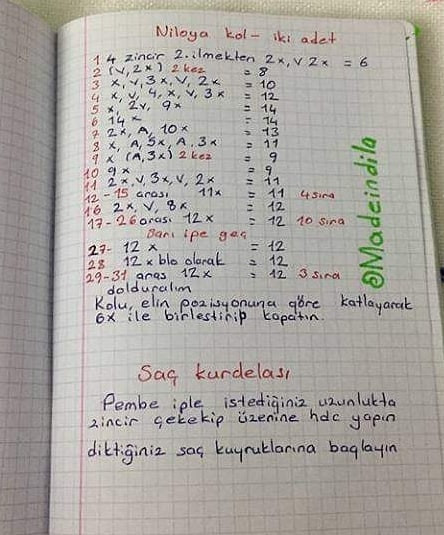 Niloya kol - iki adet
1 4 zincir 2. ilmekten 2x, V 2x = 6
2 (V, 2x) 2 kez = 8
3 x, V, 3x, V, 2x = 10
4 x, V, 4, x, V, 3x = 12
5 x, 2V, 9x = 14
6 14x = 14
7 2x, A, 10x = 13
8 x, A, 5x, A, 3x = 11
9 x (A, 3x) 2 kez = 9
10 9x = 9
11 2x, V, 3x, V, 2x = 11
12-15 arası 11x = 11 4 sıra
16 2x, V, 8x = 12
17-26 arası 12x = 12 10 sıra
Sarı ipe geç
27- 12x = 12
28 12x blo olarak = 12
29-31 aras 12x = 12 3 sıra
dolduralım
Kolu, elin pozisyonuna göre katlayarak
6x ile birleştirip kapatın.
@Madeindila
Saç kurdelası
Pembe iple istediğiniz uzunlukta
zincir çekekip üzerine hdc yapın
diktiğiniz saç kuyruklarına bağlayın